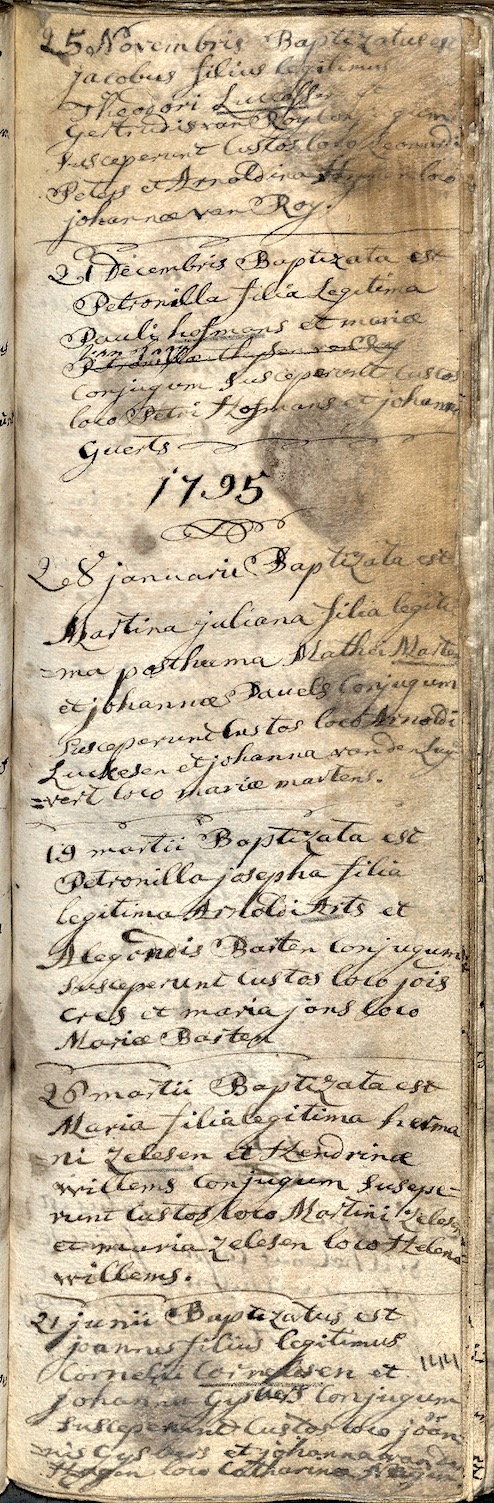 25 Novembris Baptizatus est
jacobus filius legitimus
Theodori et
Gertrudis van Roy
Susceperunt Custos loco Leonardi
Peters et Arnoldina loco
johannæ van Roy.
21 Decembris Baptizata est
Petronilla filia Legitima
Pauli hofmans et mariæ
conjugum Susceperunt Custos
loco Petri Hofmans et johanna
Guerts
1795
28 januarii Baptizata est
Martina juliana filia legiti
=ma posthuma Mathei Marte
et johannæ Pauels Conjugum
Susceperunt Custos loco Arnoldi
Luckesen et johanna van den
=vert loco mariæ martens.
19 martii Baptizata est
Petronilla josepha filia
legitima Arnoldi Arts et
Alegondis Basten Conjugum
Susceperunt Custos loco jois
Cres et maria jons loco
Mariæ Basten
26 martii Baptizata est
Maria filia legitima herma
=ni Zelesen et Hendrinæ
willems Conjugum Suscepe=
runt Custos loco Martini Zelesen
et maria Zelesen loco Helena
willems.
21 junii Baptizatus est
joannes filius legitimus
Cornelii Cornelissen et 144
johanna Gysbers Conjugum
Susceperunt Custos loco joan
=nis Gysbers et johanna van den
loco Catharina